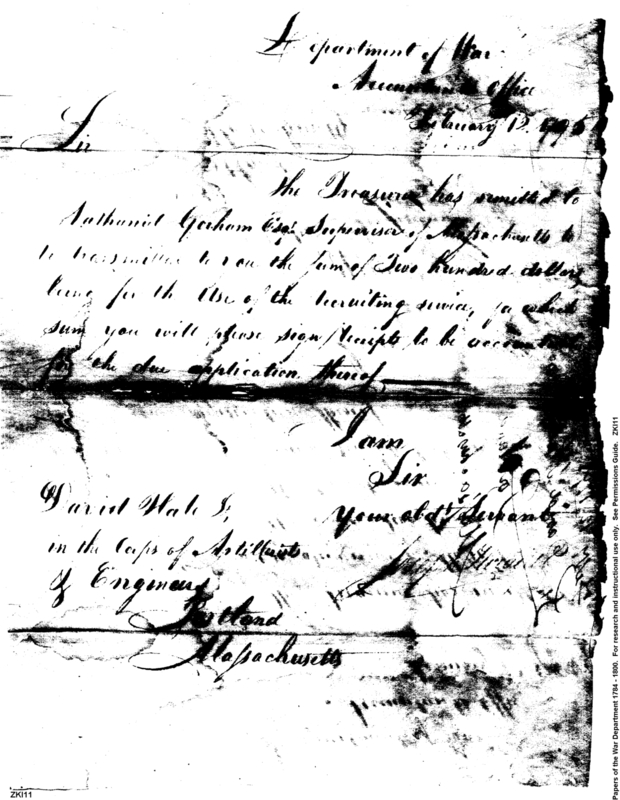 Department of War
Accountants Office
February 12. 1795
Sir
The Treasurer has remitted to
Nathaniel Gorham Esqr. Supervisor of Massachusetts to
be transmitted to you the sum of Two hundred dollars
being for the Use of the recruiting service, for which
sum you will please sign receipts to be accountable
for the due application thereof
I am
Sir
Your obdt. Servant
David Hale
in the Corps of Artillerists
& Engineers
Portland
Massachusetts
ZKI11
Papers of the War Department 1784 - 1800. For research and instructional use only. See Permissions Guide. ZKI11